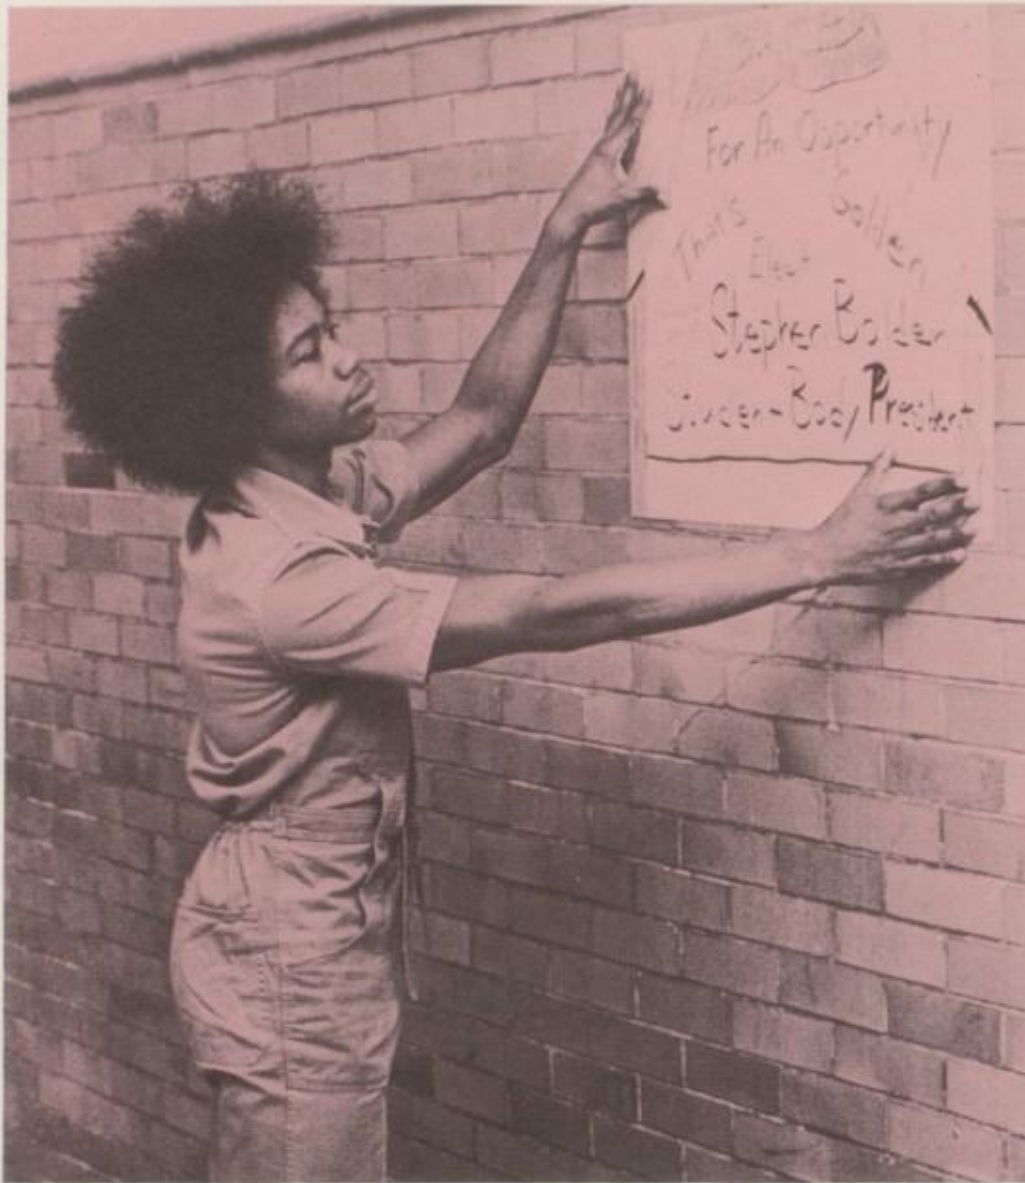 For An Opportunity
That's Golden
Elect
Stephen Bolden
Student-Body President